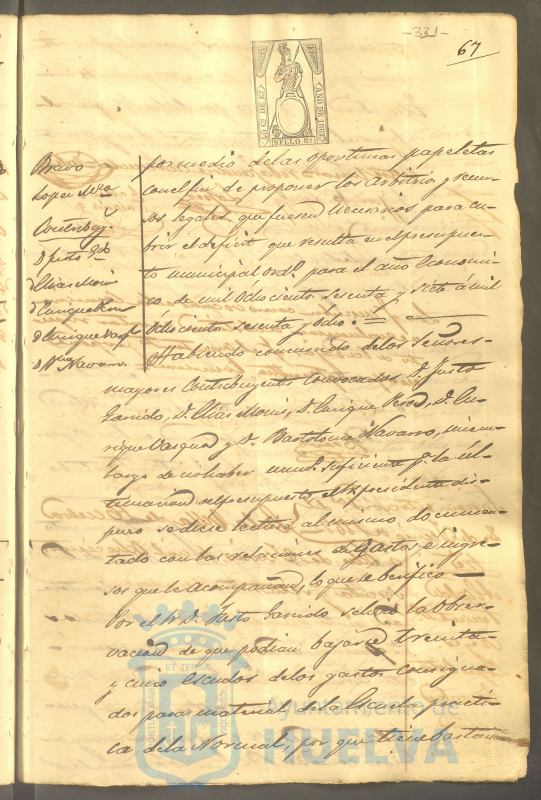 -331-
67
SELLO 8º
AÑO DE 1867
Bravo
Lopez
Contribuy.
D. Justo
Elias Moni
D Enrique
D Enrique
Navarro
por medio de las oportunas papeletas
con el fin de proponer los arbitrios y recur-
sos legales que fuesen necesarios para cu-
brir el deficit que resulta en el presupues-
to municipal ordº para el año económi-
co de mil Ochocientos sesenta y siete á mil
Ochocientos sesenta y Ocho.
Habiendo concurrido de los Señores
mayores Contribuyentes convocados D. Justo
Garrido, D. Elias Moni, D. Enrique Perez, D. En-
rique Vasquez y D. Bartolomé Navarro, sin em-
bargo de no haber numº suficiente pª la ul-
timacion del presupuesto, el Sr presidente dis-
puso se diese lectura al mismo documen-
tado con las relaciones de Gastos e ingre-
sos que le acompañan, lo que se berificó
Por el Sr D. Justo Garrido se hizo la obser-
vacion de que podian bajarse treinta
y cinco escudos de los gastos consigna-
dos para material de la Escuela practi-
ca de la Normal, por que tiene bastan
Ayuntamiento de
HUELVA